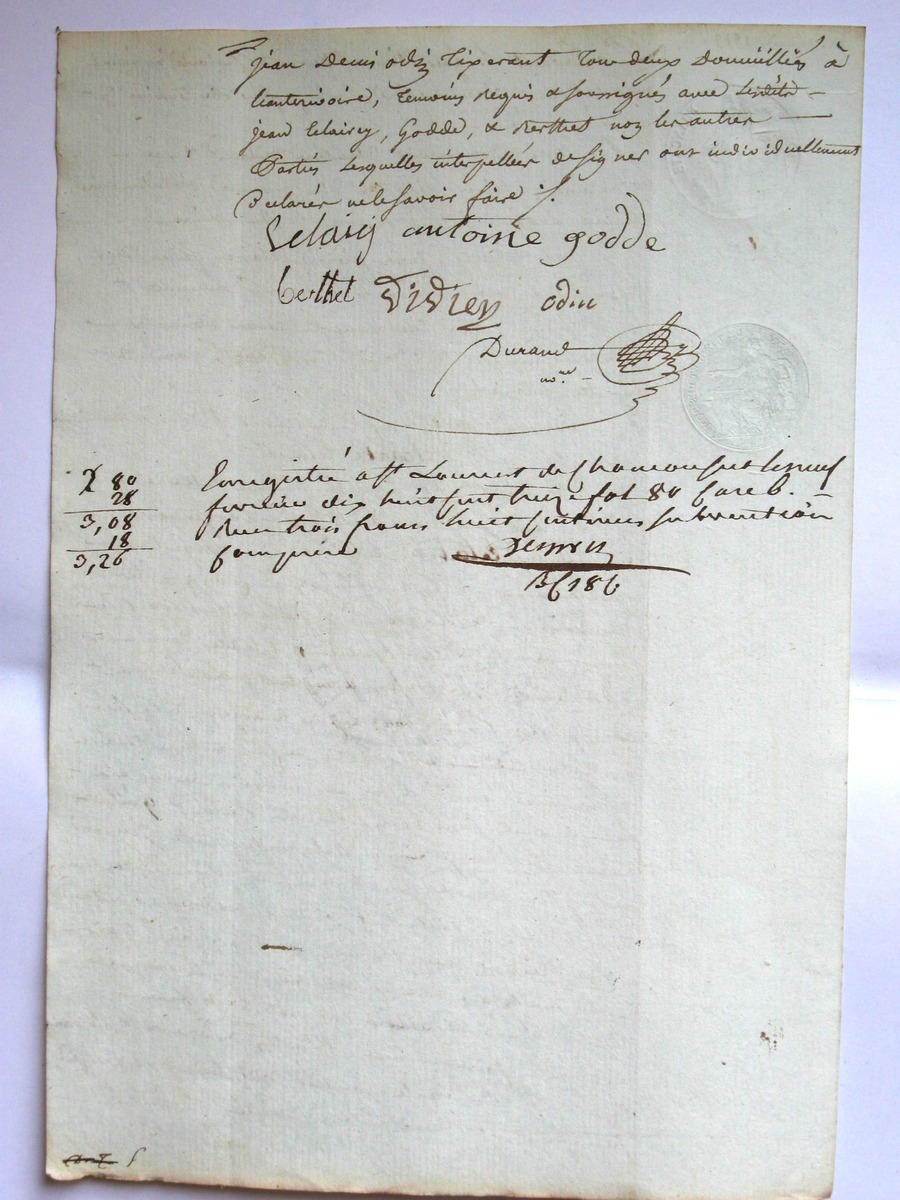 jean Denis odin Tixerant Tous deux Domiciliés à
hauterivoire, Temoins requis & soussignés avec Lesdits
jean Leclairey, Godde, & Berthet non les autres
Parties Lesquelles interpellées de signer ont individuellement
Declarés ne le savoir faire ./.
antoine godde
berthet Didier odin
Durand
nore
2 80
28
3,08
18
3,26
Enregistré à St Laurent de Chamousset le neuf
fevrier dix huit cent treize fol 80 Case 6.
Reçu trois francs huit centimes subvention
comprise